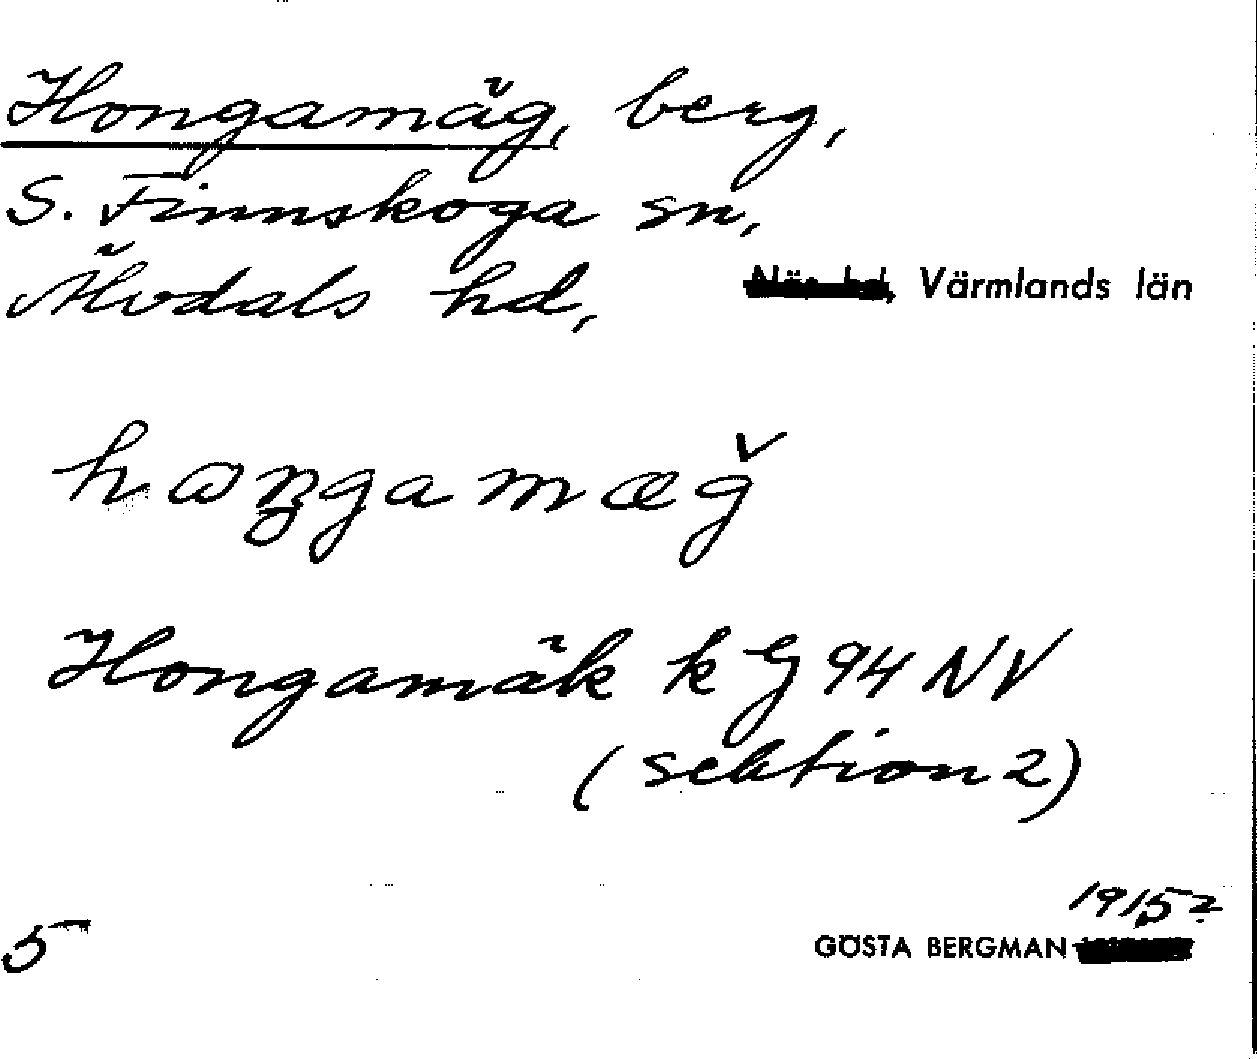 Hongamäg, berg,
S. Finnskoga sn,
Älvdals hd, Värmlands län
Hongamäk k G 94 NV
(sektion 2)
1915?
5 GÖSTA BERGMAN